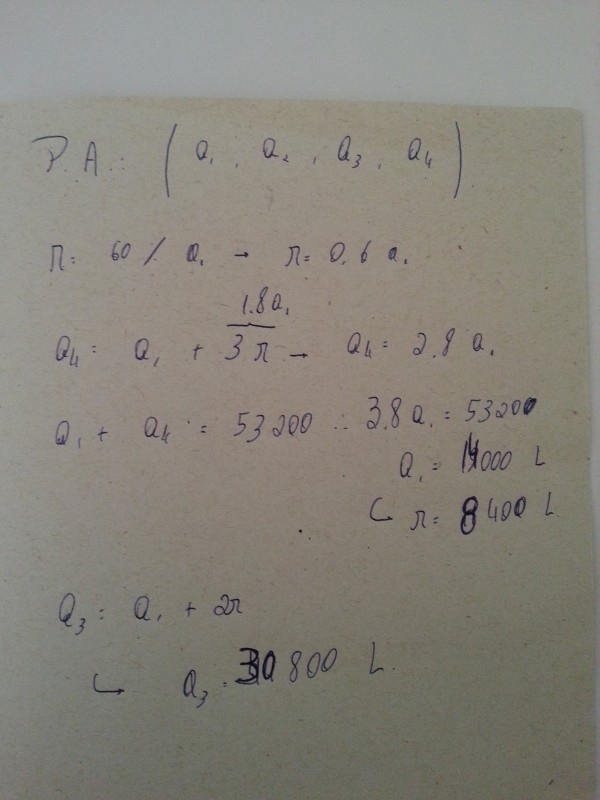 P.A.: (a₁, a₂, a₃, a₄)
r = 60% a₁ → r = 0.6 a₁
1.8a₁
a₄ = a₁ + 3r → a₄ = 2.8 a₁
a₁ + a₄ = 53200 ∴ 3.8 a₁ = 53200
a₁ = 14000 L
↳ r = 8400 L
a₃ = a₁ + 2r
↳ a₃ = 30800 L.